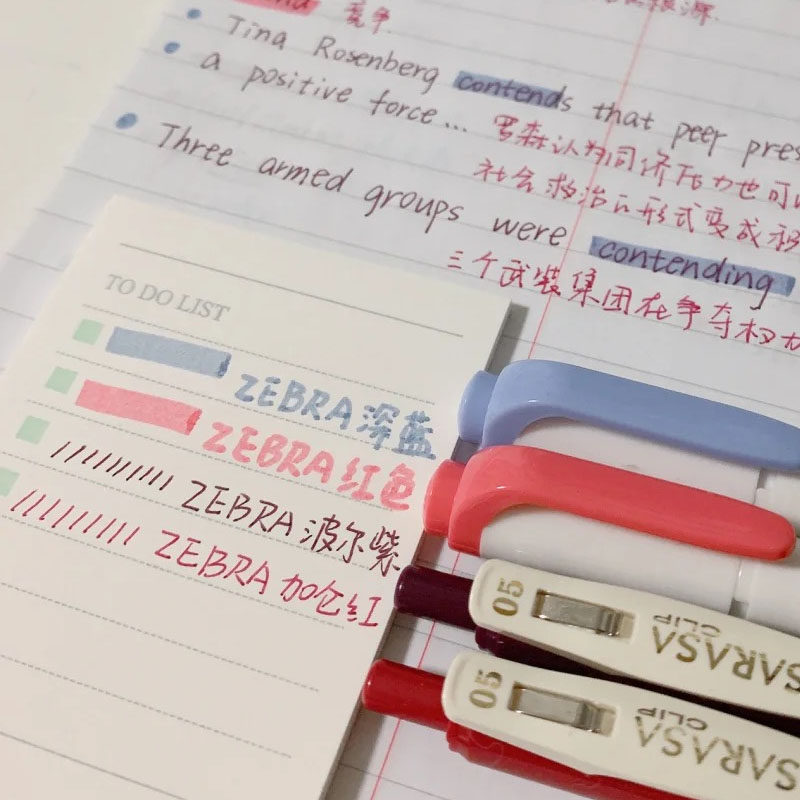 竞争
Tina Rosenberg contends that peer pres
a positive force...
罗森认为同侪压力也可以
社会救治的形式变成积
Three armed groups were contending
三个武装集团在争夺权力
TO DO LIST
ZEBRA 深蓝
ZEBRA 红色
ZEBRA 波尔紫
ZEBRA 加仑红
05 SARASA CLIP
05 SARASA CLIP